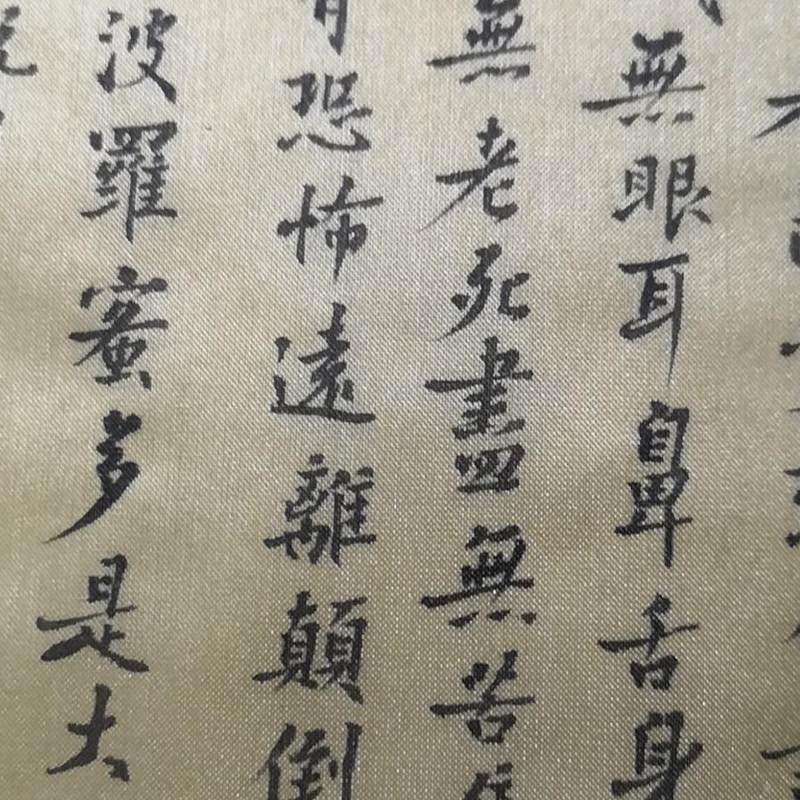 無眼耳鼻舌身
無老死盡無苦
有恐怖遠離顛倒
波羅蜜多是大